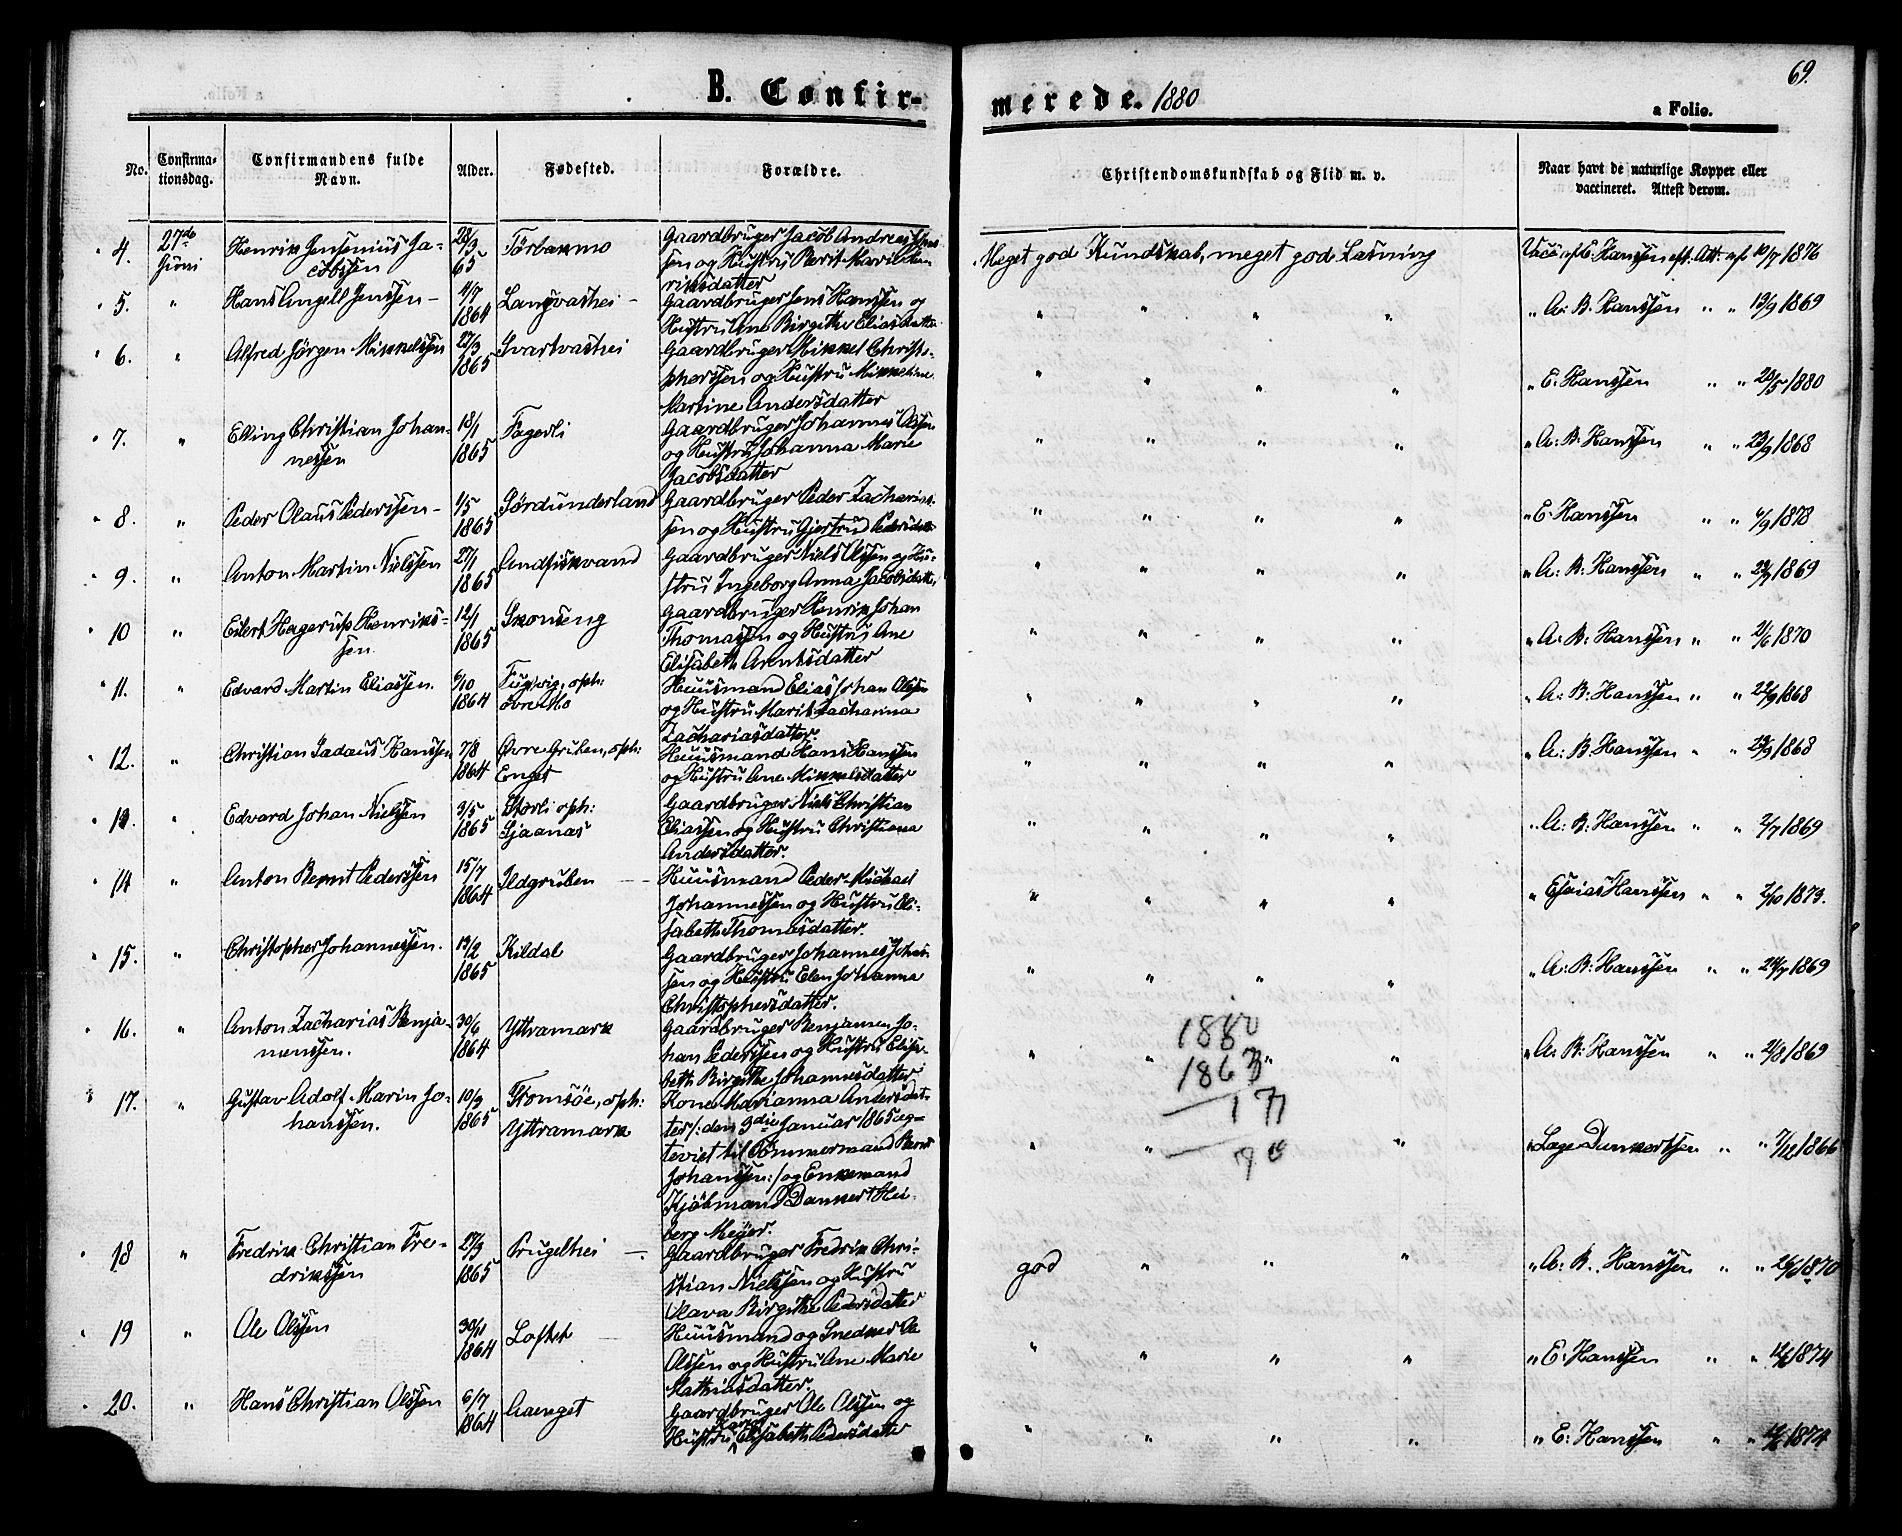 69.
B. Confirmerede. 1880
a Folio.
No. Confirmationsdag. Confirmandens fulde Navn. Alder. Fødested. Forældre. Christendomskundskab og Flid m. v. Naar havt de naturlige Kopper eller vaccineret. Attest derom.
4. 27de Juni Henrik Jensenius Ja- 28/3 Tørbækmo Gaardbruger Jacob Andreas
cobsen 65 sen og Hustru Berit Maria Hen-
riksdatter
Meget god Kundskab, meget god Læsning Vacc. af E. Hanssen eft. Att. af 10/7 1876
5. " Hans Angell Jenssen - 4/7 Langvashei - Gaardbruger Jens Hanssen og
1864 Hustru Ane Birgitte Eliasdatter
" " " " " A. B. Hanssen " " 13/9 1869
6. " Alfred Jörgen Mikkelssen 22/3 Svartvashei Gaardbruger Mikkel Christo-
1865 phersen og Hustru Mikkeline
Martine Andersdatter
" " " " " E. Hanssen " " 28/5 1880
7. " Elling Christian Johan- 18/1 Fagerli Gaardbruger Johannes Olssen
nessen 1865 og Hustru Johanna Marie
Jacobsdatter
" " " " " A. B. Hanssen " " 23/9 1868
8. " Peder Olaus Pederssen - 1/5 Sørdunderland Gaardbruger Peder Zacharias-
1865 sen og Hustru Gjertrud Pedersdatter
" " " " " E. Hanssen " " 4/9 1878
9. " Anton Martin Nielssen 27/1 Andfiskvand Gaardbruger Niels Olssen og Hu-
1865 stru Ingeborg Anna Jacobsdatter
" " " " " A. B. Hanssen " " 1869
10 " Eilert Hagerup Henriks- 12/1 Skonseng Gaardbruger Henrik Johan
sen 1865 Thomassen og Hustru Ane
Elisabeth Arntsdatter
" " " " " A. B. Hanssen " " 21/6 1870
11. " Edvard Martin Eliassen. 6/10 oph: Huusmand Elias Johan Olssen
1864 övre Mo og Hustru Marit Zacharina
Zachariasdatter.
" " " " " A. B. Hanssen " " 22/9 1868
12. " Christian Tadæus Hanssen 7/8 Øvre Gruben, oph: Huusmand Hans Hanssen
1864 Enget og Hustru Ane Mikkelsdatter
" " " " " A. B. Hanssen " " 23/9 1868
13. " Edvard Johan Nielssen 3/5 Storli oph: Gaardbruger Niels Christian
1865 Sjaanæs Eliassen og Hustru Christiana
Andersdatter.
" " " " " A. B. Hanssen " " 2/7 1869
14 " Anton Bernt Pederssen 15/7 Ildgruben - Huusmand Peder Michael
1864 Johannessen og Hustru Eli-
sabeth Thomasdatter.
" " " " " Esaias Hanssen " " 2/10 1873.
15. " Christopher Johannessen. 13/2 Kildal Gaardbruger Johannes Johan-
1865 sen og Hustru Elen Johanna
Christophersdatter.
" " " " " A. B. Hanssen " " 24/7 1869
16. " Anton Zacharias Benja- 30/6 Yttramark Gaardbruger Benjamen Jo-
menssen. 1864 han Pederssen og Hustru Elisa-
beth Birgitte Johannesdatter
" " " " " A. B. Hanssen " " 2/8 1869
1880
1863
17
17. " Gustav Adolf Marin Jo- 10/9 Tromsøe, oph: Kone Marianna Andersdat-
hanssen. 1865 Yttramark ter /: den 3die Januar 1865 æg-
teviet til Tömmermand Bernt
Johanssen :/ og Enkemand
Kjöbmand Dankert Hei-
berg Meyer.
" " " " Lage Dunkertsen " " 7/12 1866
18 " Fredrik Christian Fre- 27/3 Prugelhei - Gaardbruger Fredrik Chri-
drikssen 1865 stian Nielssen og Hustru
Olava Birgitte Pedersdatter
god " " " " A. B. Hanssen " " 26/6 1870
19 " Ole Olssen 30/11 Loftet Huusmand og Snedker Ole
1864 Olssen og Hustru Ane Marie
Mathiasdatter.
" " " " " E. Hanssen " " 12/6 1874
20. " Hans Christian Olssen 6/7 Aaenget Gaardbruger Ole Olssen og
1864 Hustru Karen Elisabeth Pedersdatter
" " " " " E. Hanssen " " 12/6 1874